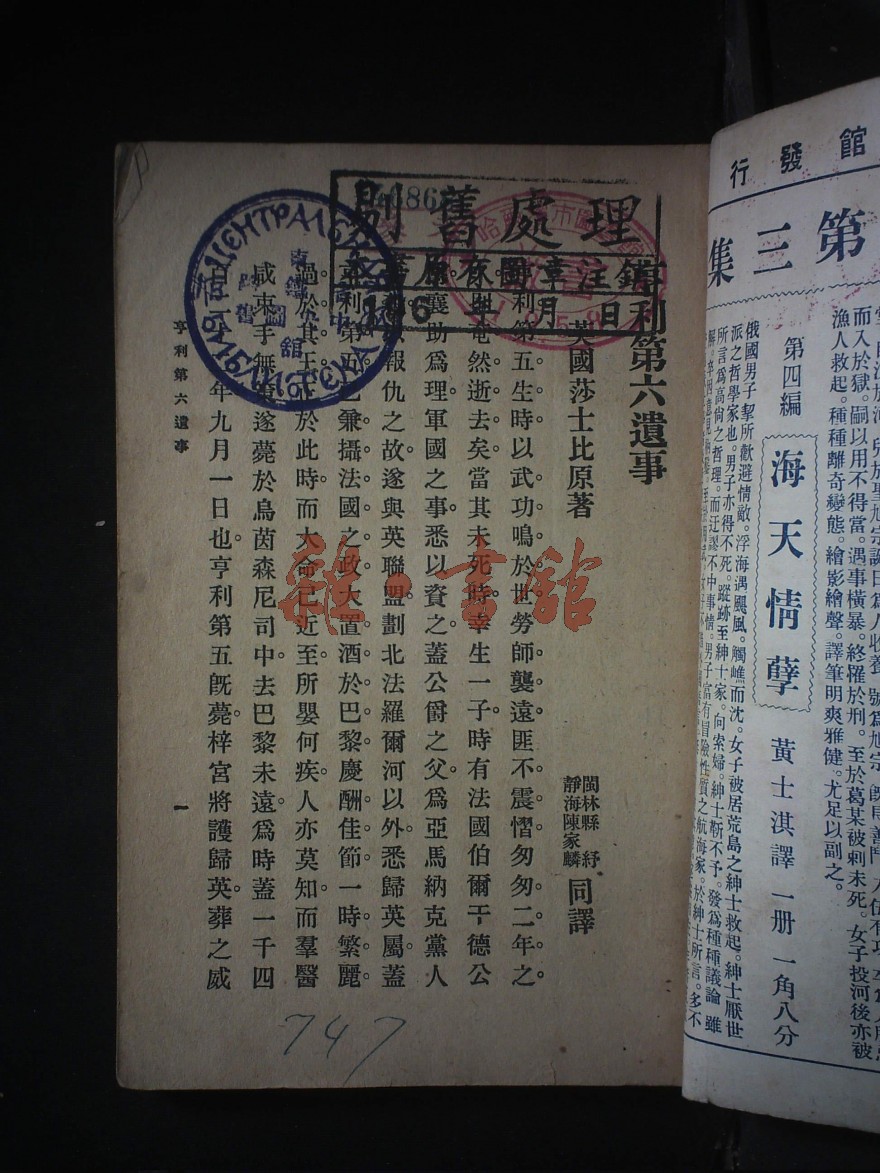 館發行
第三集
第四編
海天情孽
黃士淇譯 一册 一角八分
而入於獄。嗣以用不得當。遇事橫暴。終罹於刑。至於葛某被刺未死。女子投河後亦被
漁人救起。種種離奇變態。繪影繪聲。譯筆明爽雅健。尤足以副之。
俄國男子挈所歡避情敵。浮海遇颶風。觸礁而沈。女子被居荒島之紳士救起。紳士厭世
派之哲學家也。男子亦得不死。蹤跡至紳士家。向索婦。紳士靳不予。發爲種種議論。雖
所言爲高尙之哲理。而迂謬不中事情。男子富有冒險性質之航海家。於紳士所言。多不
亨利第六遺事
英國莎士比原著
閩縣林紓
靜海陳家麟
同譯
利第五生時以武功鳴於世勞師襲遠匪不震慴匆匆二年之
奄然逝去矣當其未死時幸生一子時有法國伯爾干德公
襄助爲理軍國之事悉以資之蓋公爵之父爲亞馬納克黨人
報仇之故遂與英聯盟劃北法羅爾河以外悉歸英屬蓋
亨利第五已兼攝法國之政大置酒於巴黎慶酬佳節一時繁麗
過於其王 於此時而大命已近至所嬰何疾人亦莫知而羣醫
咸束手無 遂薨於烏茵森尼司中去巴黎未遠爲時蓋一千四
年九月一日也亨利第五旣薨梓宮將護歸英葬之威
亨利第六遺事
一
剔舊處理
注銷
年 月 日
ЦЕНТРАЛЬН
БИБЛИОТЕКА
圖
館
747
雜·書館